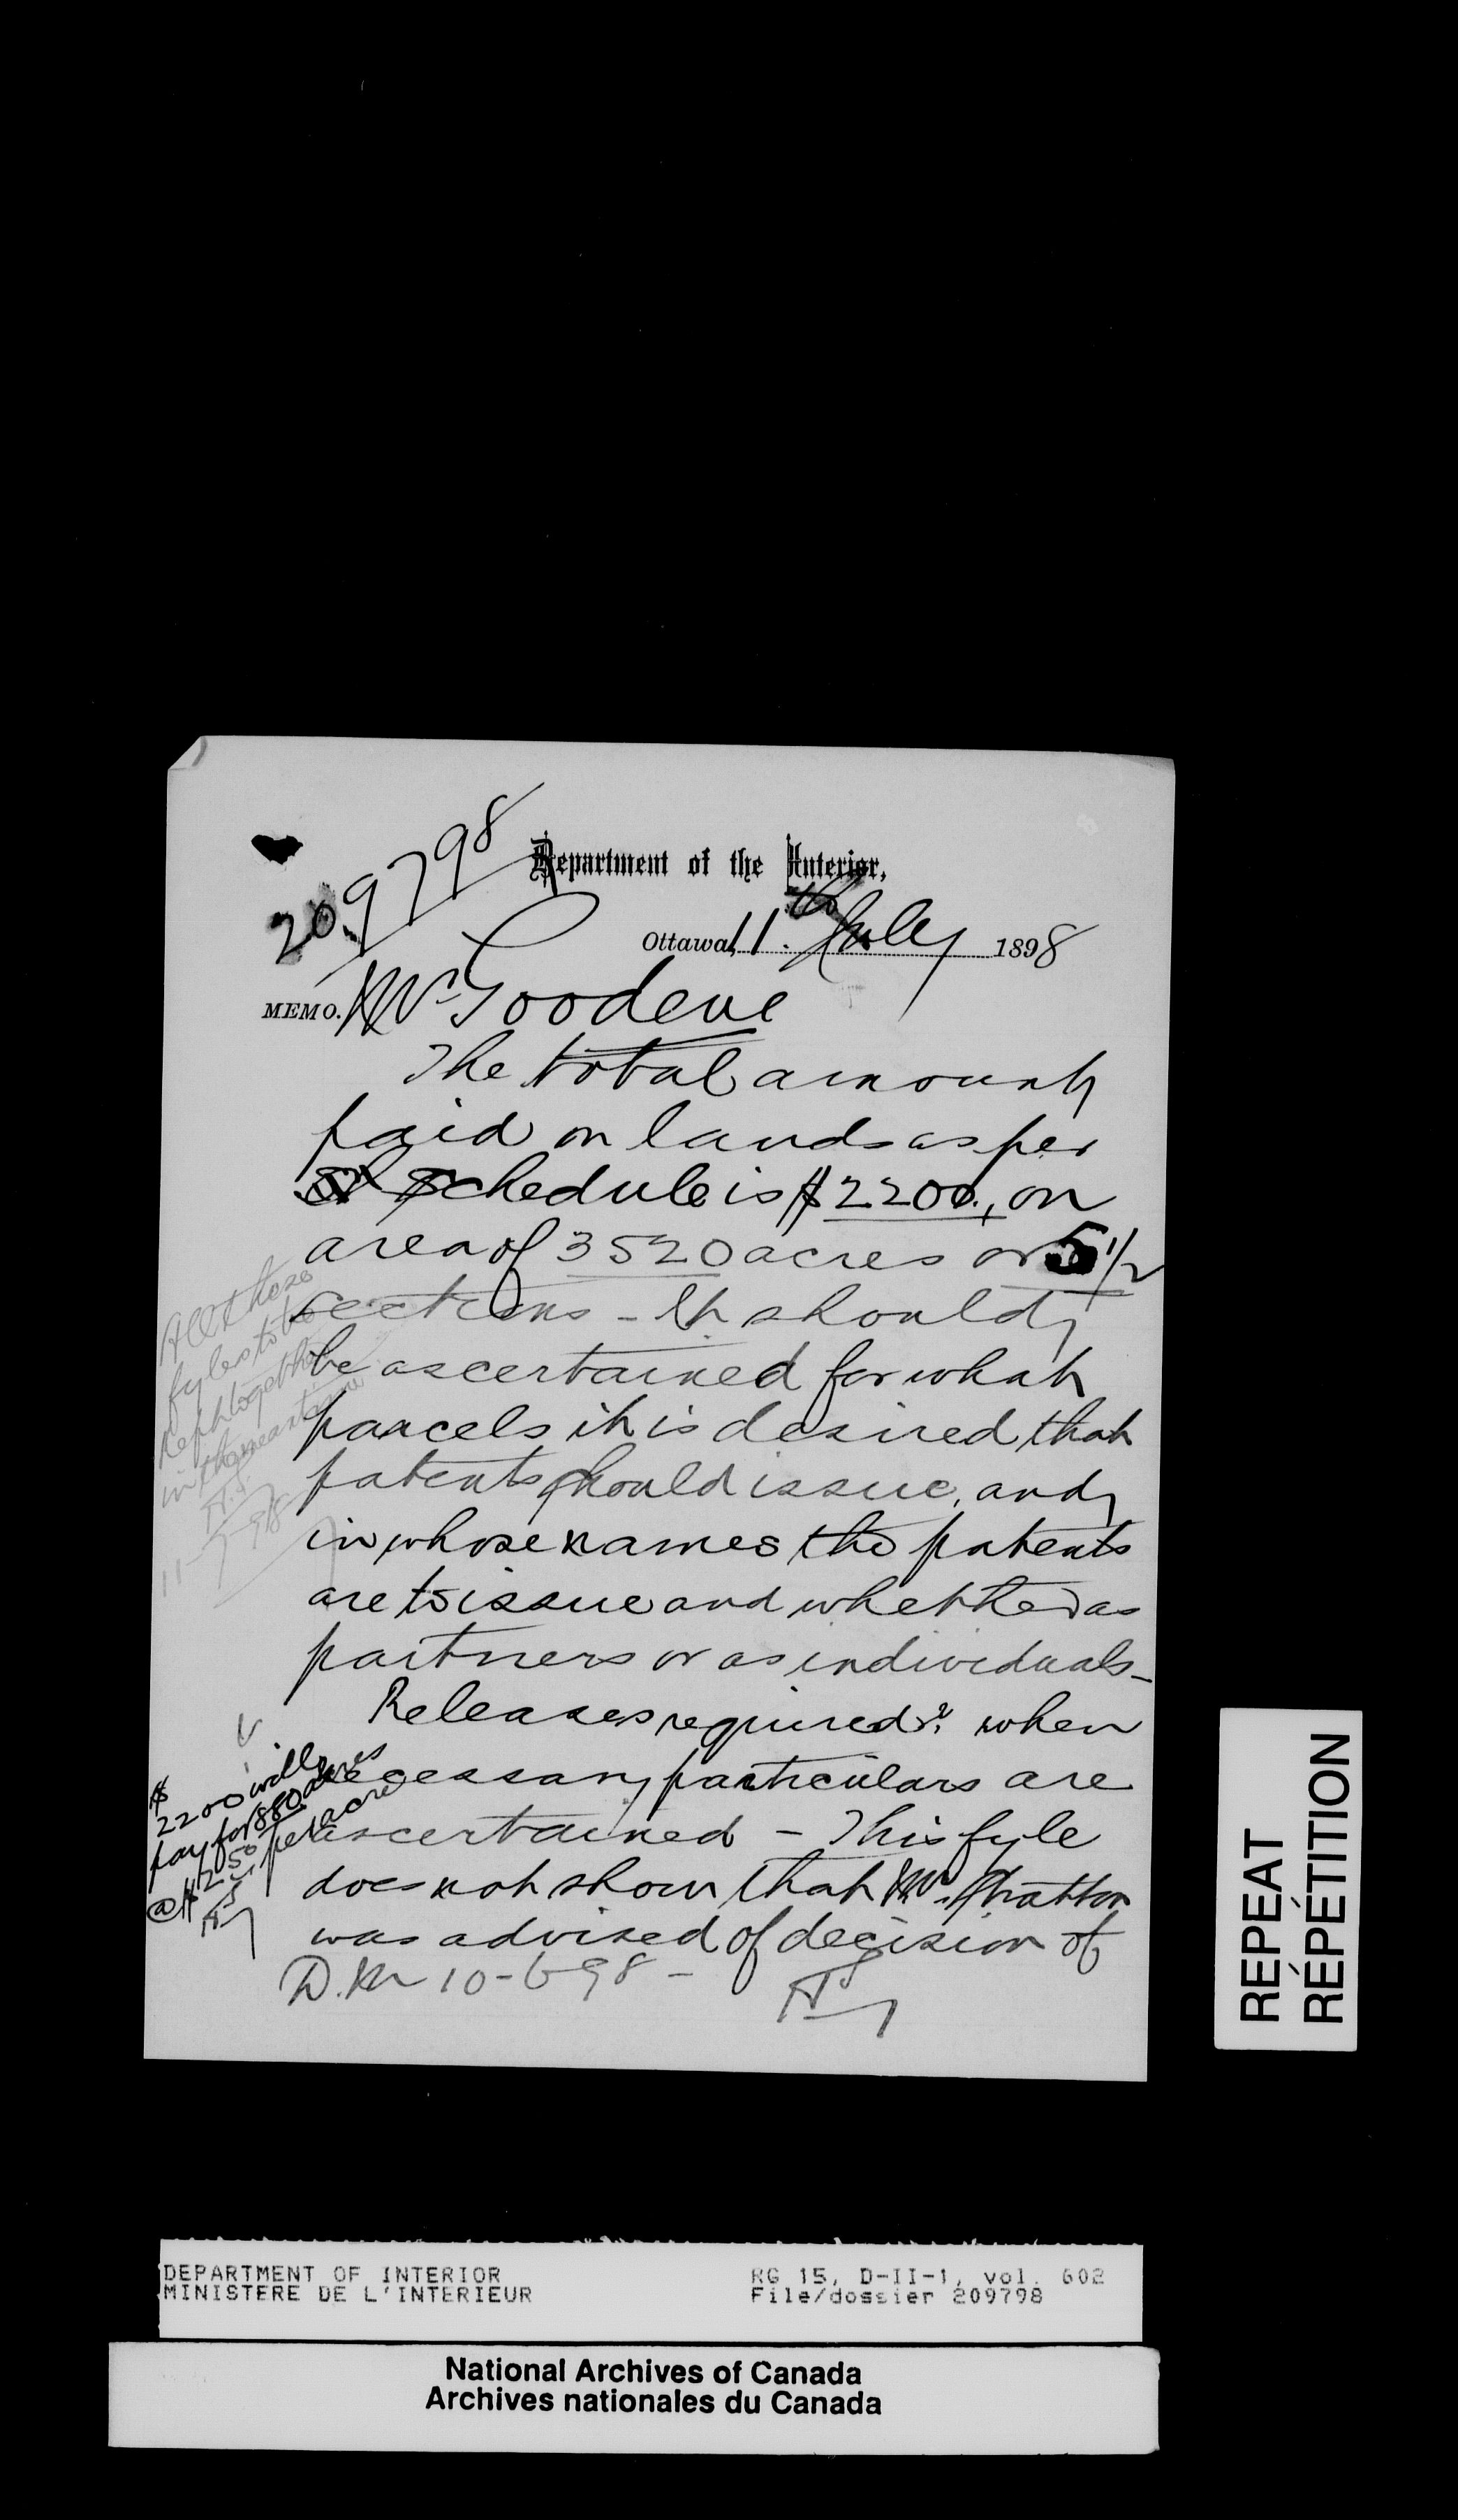 209798
Department of the Interior,
Ottawa, 11th July 1898
MEMO. Mr Goodeve
The total amount
paid on lands as per
schedule is $2200., on
area of 3520 acres or 5 1/2
sections - It should
be ascertained for what
parcels it is desired that
patents should issue, and
in whose names the patents
are to issue and whether as
partners or as individuals -
Releases required? when
necessary particulars are
ascertained - This fyle
does not show that Mr. Stratton
was advised of decision of
D.M 10-6-98 -
All these
fyles to be
kept together
in the meantime
11-7-98
$
2200 will
pay for 880 acres
@ $2.50 per acre
REPEAT
RÉPÉTITION
DEPARTMENT OF INTERIOR
MINISTERE DE L'INTERIEUR
RG 15, D-II-1, vol. 602
File/dossier 209798
National Archives of Canada
Archives nationales du Canada